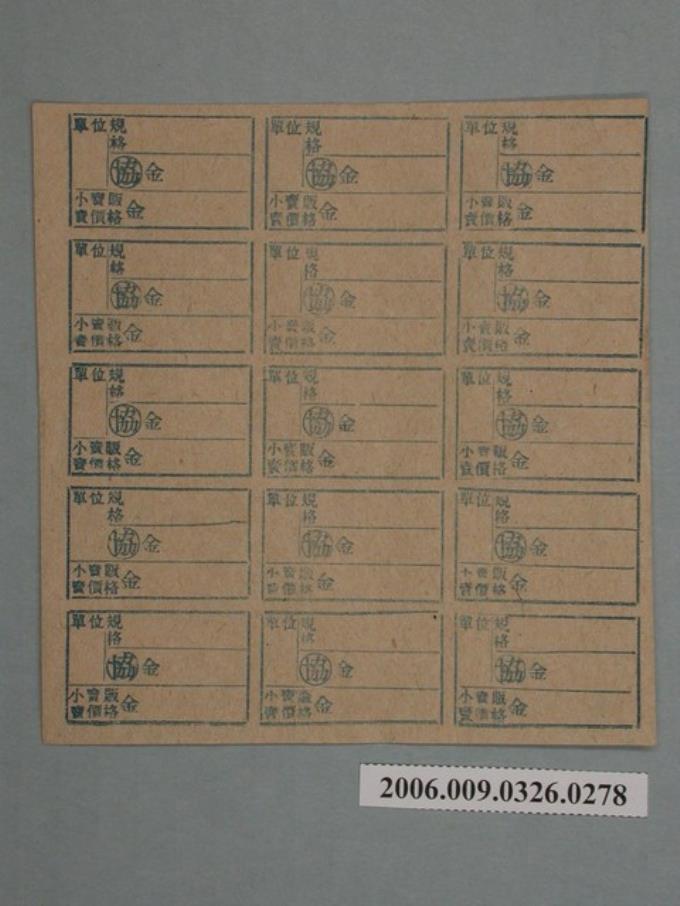 單位規
格
協金
小賣販
賣價格金
單位規
格
協金
小賣販
賣價格金
單位規
格
協金
小賣販
賣價格金
單位規
格
協金
小賣販
賣價格金
單位規
格
協金
小賣販
賣價格金
單位規
格
協金
小賣販
賣價格金
單位規
格
協金
小賣販
賣價格金
單位規
格
協金
小賣販
賣價格金
單位規
格
協金
小賣販
賣價格金
單位規
格
協金
小賣販
賣價格金
單位規
格
協金
小賣販
賣價格金
單位規
格
協金
小賣販
賣價格金
單位規
格
協金
小賣販
賣價格金
單位規
格
協金
小賣販
賣價格金
單位規
格
協金
小賣販
賣價格金
2006.009.0326.0278